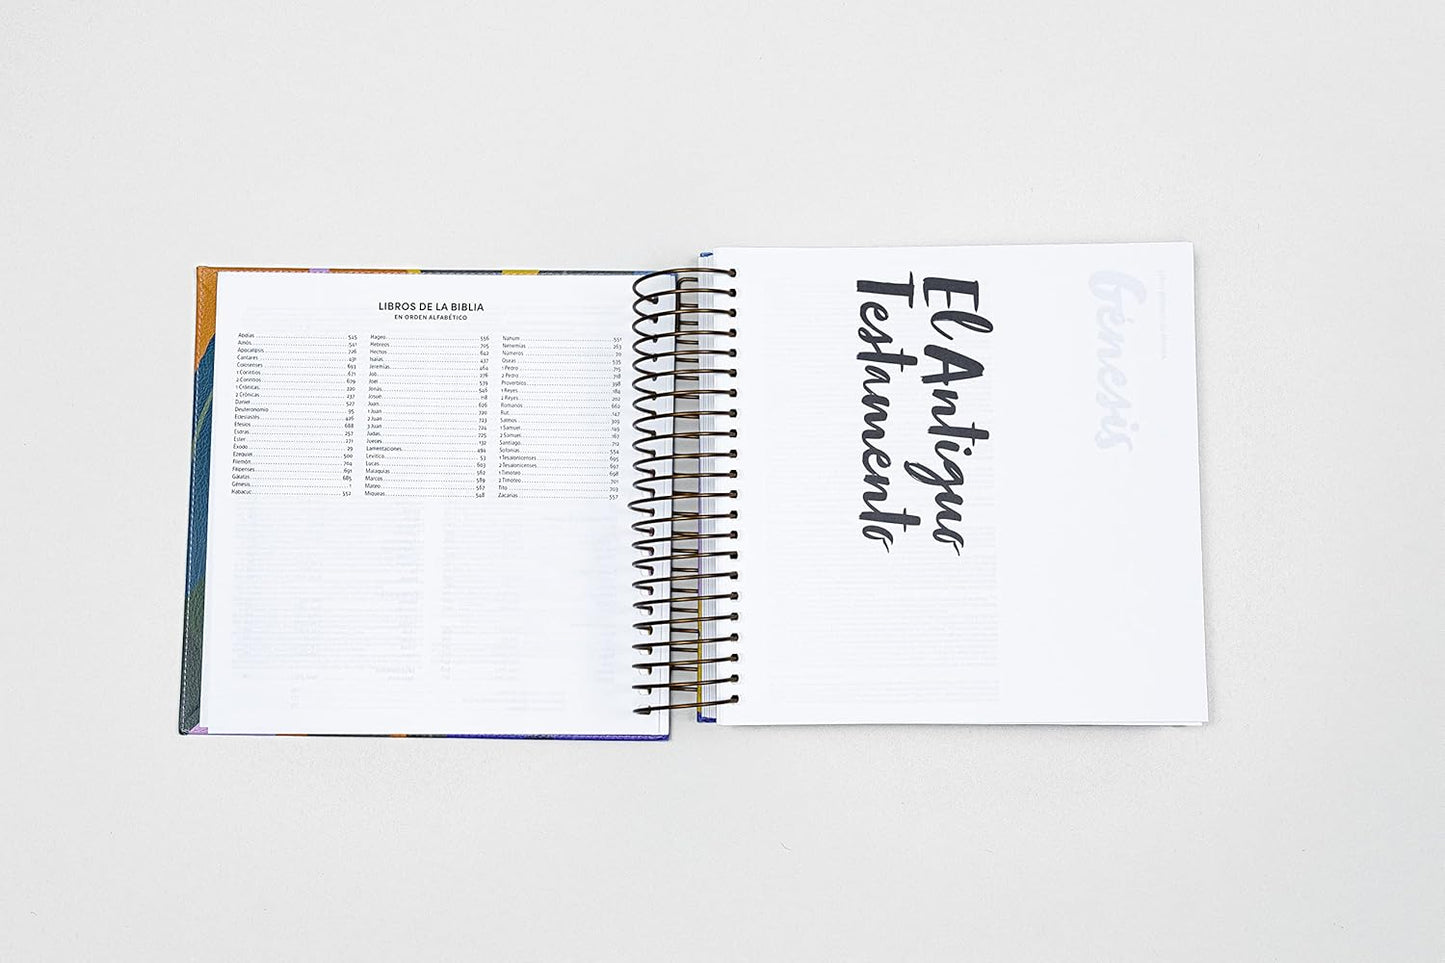 LIBROS DE LA BIBLIA
EN ORDEN ALFABÉTICO
Abdías 545
Amós 541
Apocalipsis 726
Cantares 431
Colosenses 693
1 Corintios 671
2 Corintios 679
1 Crónicas 220
2 Crónicas 237
Daniel 527
Deuteronomio 95
Eclesiastés 426
Efesios 688
Esdras 257
Ester 271
Éxodo 29
Ezequiel 500
Filemón 704
Filipenses 691
Gálatas 685
Génesis 1
Habacuc 552
Hageo 556
Hebreos 705
Hechos 642
Isaías 437
Jeremías 464
Job 276
Joel 539
Jonás 546
Josué 118
Juan 626
1 Juan 720
2 Juan 723
3 Juan 724
Judas 725
Jueces 132
Lamentaciones 494
Levítico 53
Lucas 603
Malaquías 562
Marcos 589
Mateo 567
Miqueas 548
Nahúm 551
Nehemías 263
Números 70
Oseas 535
1 Pedro 715
2 Pedro 718
Proverbios 398
1 Reyes 184
2 Reyes 202
Romanos 662
Rut 147
Salmos 309
1 Samuel 149
2 Samuel 167
Santiago 712
Sofonías 554
1 Tesalonicenses 695
2 Tesalonicenses 697
1 Timoteo 698
2 Timoteo 701
Tito 703
Zacarías 557
El Antiguo
Testamento
Génesis